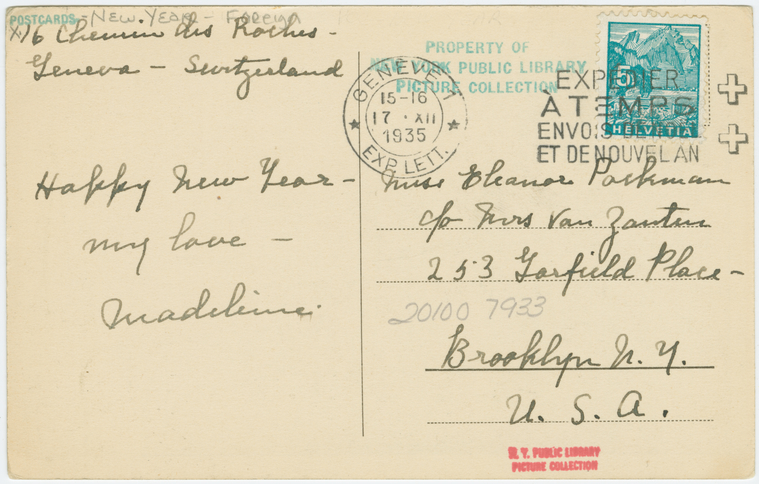 POSTCARDS - NEW YEAR - FOREIGN
16 Chemin des Roches -
Geneva - Switzerland
PROPERTY OF
NEW YORK PUBLIC LIBRARY
PICTURE COLLECTION
GENÈVE 1
15-16
17. XII
1935
EXP. LETT.
EXPEDIER
À TEMPS
ENVOIS DE NOËL
ET DE NOUVEL AN
5
HELVETIA
Happy New Year -
my love -
Madeleine.
Miss Eleanor
c/o Mrs Van Zanten
253 Garfield Place -
20100 7933
Brooklyn N. Y.
U. S. A.
N. Y. PUBLIC LIBRARY
PICTURE COLLECTION